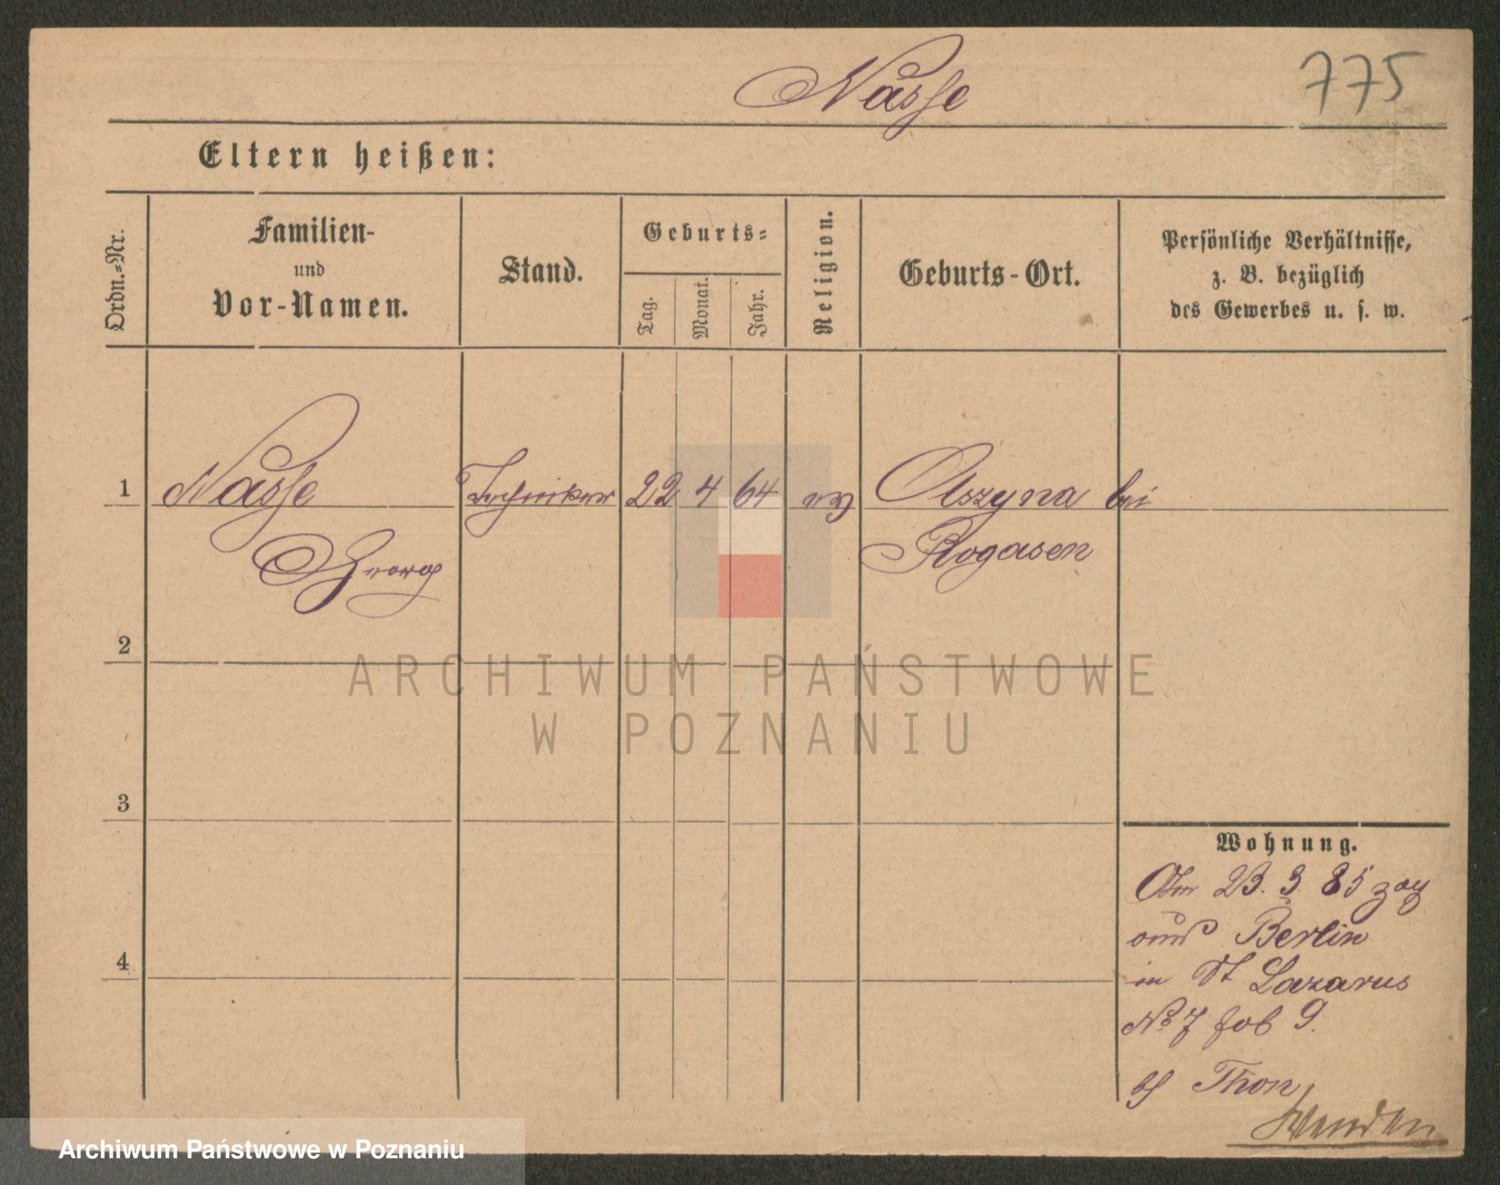 Nasse 775
Eltern heißen:
Ordn.-Nr.
Familien-
und
Vor-Namen.
Stand.
Geburts-
Tag.
Monat.
Jahr.
Religion.
Geburts-Ort.
Persönliche Verhältnisse,
z. B. bezüglich
des Gewerbes u. s. w.
1 Nasse Techniker 22 4 64 ev Olszyna bei
Georg Rogasen
2
3
4
Wohnung.
Am 23. 3. 85 zog
aus Berlin
in St Lazarus
No 7 Fol 9.
b/ Thon
Wenden
ARCHIWUM PAŃSTWOWE
W POZNANIU
Archiwum Państwowe w Poznaniu